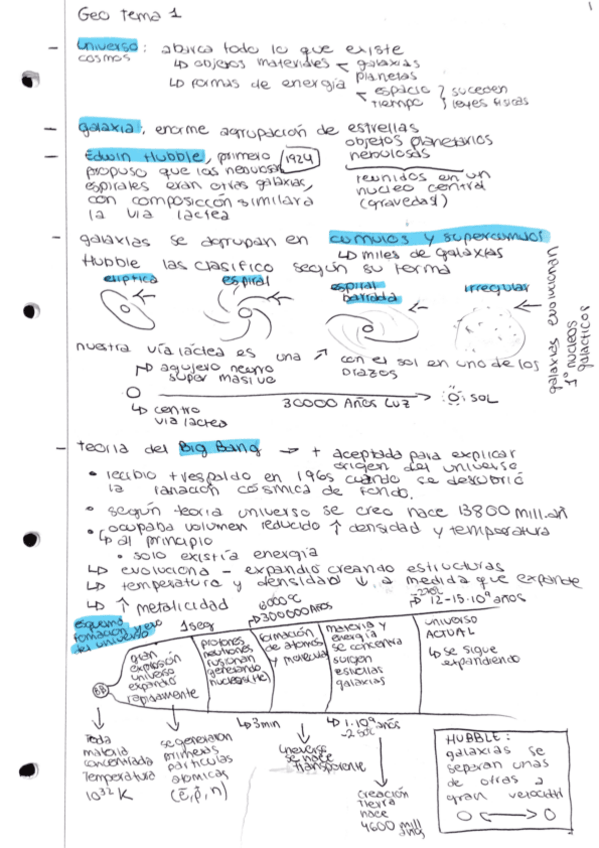 Geo Tema 1
1
- universo: abarca todo lo que existe
cosmos
↳ objetos materiales < galaxias
planetas
↳ formas de energía
< espacio } suceden
tiempo } leyes físicas
- galaxia, enorme agrupación de estrellas
objetos planetarios
nebulosas
reunidos en un
nucleo central
(gravedad)
- Edwin Hubble, primero 1924
propuso que las nebulosas
espirales eran otras galaxias,
con composición similar a
la via láctea
- galaxias se agrupan en cumulos y supercumulos
↳ miles de galaxias
Hubble las clasifico según su forma
eliptica espiral espiral barrada irregular
galaxias evolucionan
1º nucleos
galacticos
nuestra vía láctea es una ↗ con el sol en uno de los
brazos
↱ agujero negro
super masivo
30000 Años Luz → SOL
↳ centro
via láctea
- teoria del Big Bang → + aceptada para explicar
origen del universo
• recibio + respaldo en 1965 cuando se descubrió
la cósmica de fondo.
• según teoria universo se creo hace 13800 mill.añ
• ocupaba volumen reducido ↑ densidad y temperatura
↳ al principio
• solo existía energía
↳ evoluciona - expandió creando estructuras
↳ temperatura y densidad ↓ a medida que expande
↳ ↑ metalicidad
esquema
formación y evo
del universo
1seg
6000ºC
↳ 300000 AÑOS
-270ºC
↳ 12-15·10⁹ años
BB
gran
explosión
universo
expandio
rapidamente
protones
neutrones
fusionan
generando
nucleos (He)
formación
de atomos
y moleculas
materia y
energía
se concentra
surgen
estrellas
galaxias
universo
ACTUAL
↳ se sigue
expandiendo
↳ 3min
↳ 1·10⁹ años
Toda
materia
concentrada
Temperatura
10³² K
se generaron
primeras
particulas
atomicas
(e̅, p⁺, n)
universo
se hace
transparente
creación
tierra
hace
4600 mill
años
HUBBLE:
galaxias se
separan unas
de otras a
gran velocidad